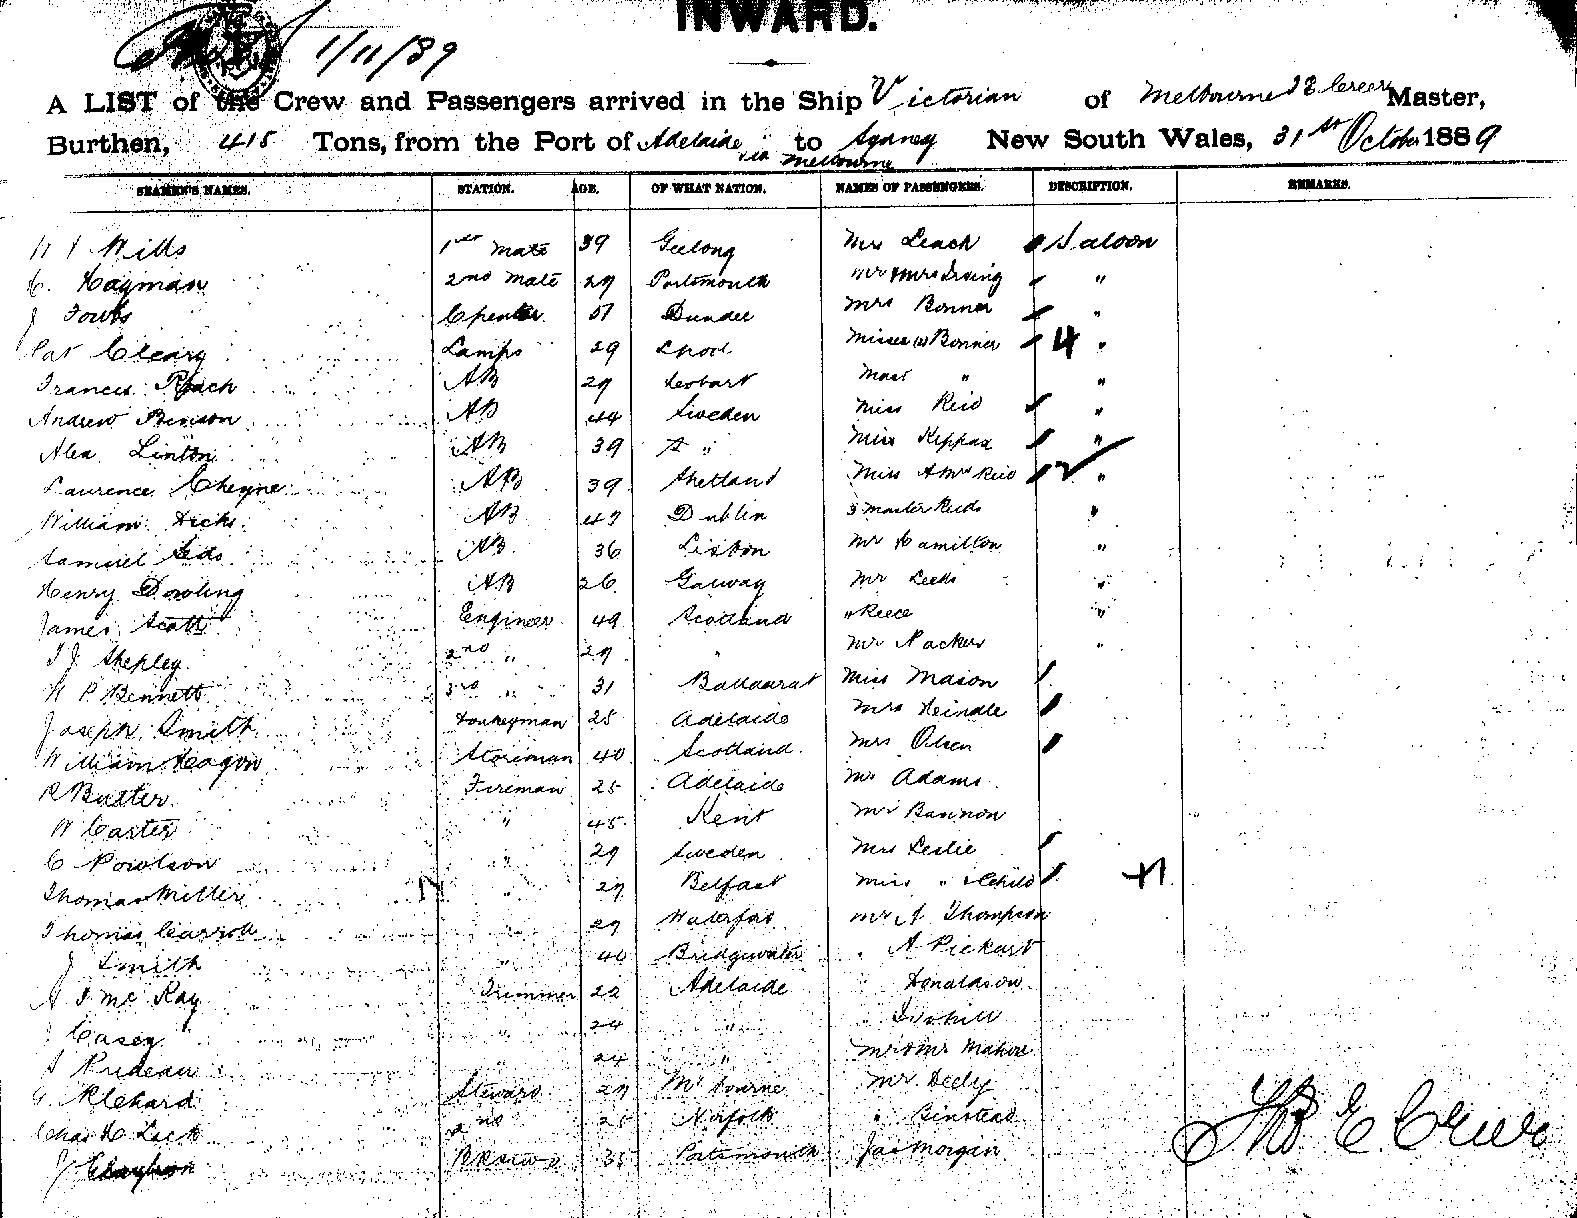 INWARD.
1/11/89
A LIST of the Crew and Passengers arrived in the Ship Victorian of Melbourne Master,
Burthen, 415 Tons, from the Port of Adelaide via Melbourne to Sydney New South Wales, 31st October 1889
SEAMEN'S NAMES. STATION. AGE. OF WHAT NATION. NAMES OF PASSENGERS. DESCRIPTION. REMARKS.
Wills 1st Mate 39 Geelong Mrs Leach Saloon
Hayman 2nd Mate 29 Portsmouth Mr Mrs Irving "
J 51 Dundee Mrs Bonner "
Pat Cleary Lamps 29 Misses (2) Bonner 4 "
Frances Roach AB 29 Hobart Mast " "
Andrew AB 44 Sweden Miss Reid "
Alex Linton AB 39 " Miss Kippax "
Laurence Cheyne AB 39 Shetland Miss Reid "
William Hicks AB 47 Dublin 3 Master Reids "
Samuel AB 36 Lisbon Mr Hamilton "
Henry Dowling AB 26 Galway Mr Leeds "
James Scott Engineer 49 Scotland " Reece "
Shepley 2nd " 29 " Mr Packer "
P Bennett 3rd " 31 Ballaarat Miss Mason
Joseph Smith Donkeyman 25 Adelaide Mrs Heindle
William Storeman 40 Scotland Mrs Olsen
R Butter Fireman 25 Adelaide Mr Adams
W Carter " 45 Kent Mr Bannon
C Powlson " 29 Sweden Mrs Leslie
Thomas Miller " 27 Belfast Miss " & Child
Thomas Carroll " 29 Waterford Mr A Thompson
J Smith " 40 Bridgewater " A Pickart
McKay Trimmer 22 Adelaide " Donaldson
Casey " 24 " "
Prideau " 24 " Mr & Mrs
Steward 29 Mr Deely
Chas H Lack 2nd Norfolk " Binstead
J Clayton 35 Portsmouth Jas Morgan
Thos E Creer